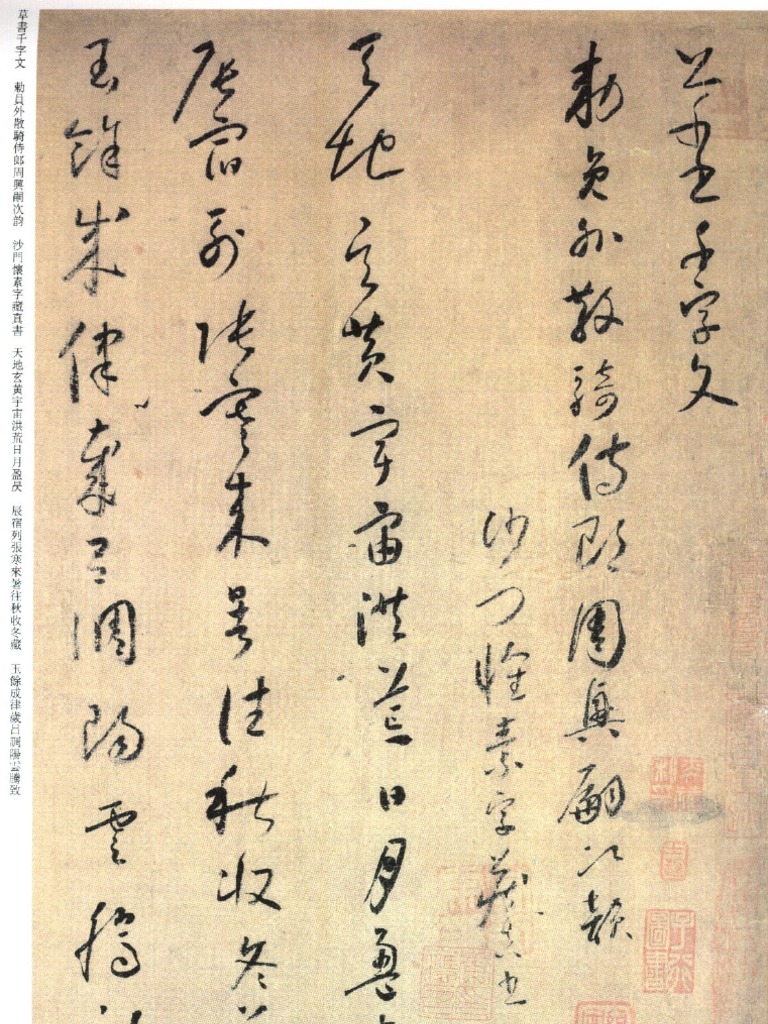 草書千字文
勅員外散騎侍郎周興嗣次韻
沙門懷素字藏真書
天地玄黃宇宙洪荒日月盈
辰宿列張寒來暑往秋收冬
玉餘成律歲呂調陽雲騰
草書千字文 勅員外散騎侍郎周興嗣次韵 沙門懷素字藏真書 天地玄黃宇宙洪荒日月盈昃 辰宿列張寒來暑往秋收冬藏 玉餘成律歲呂調陽雲騰致